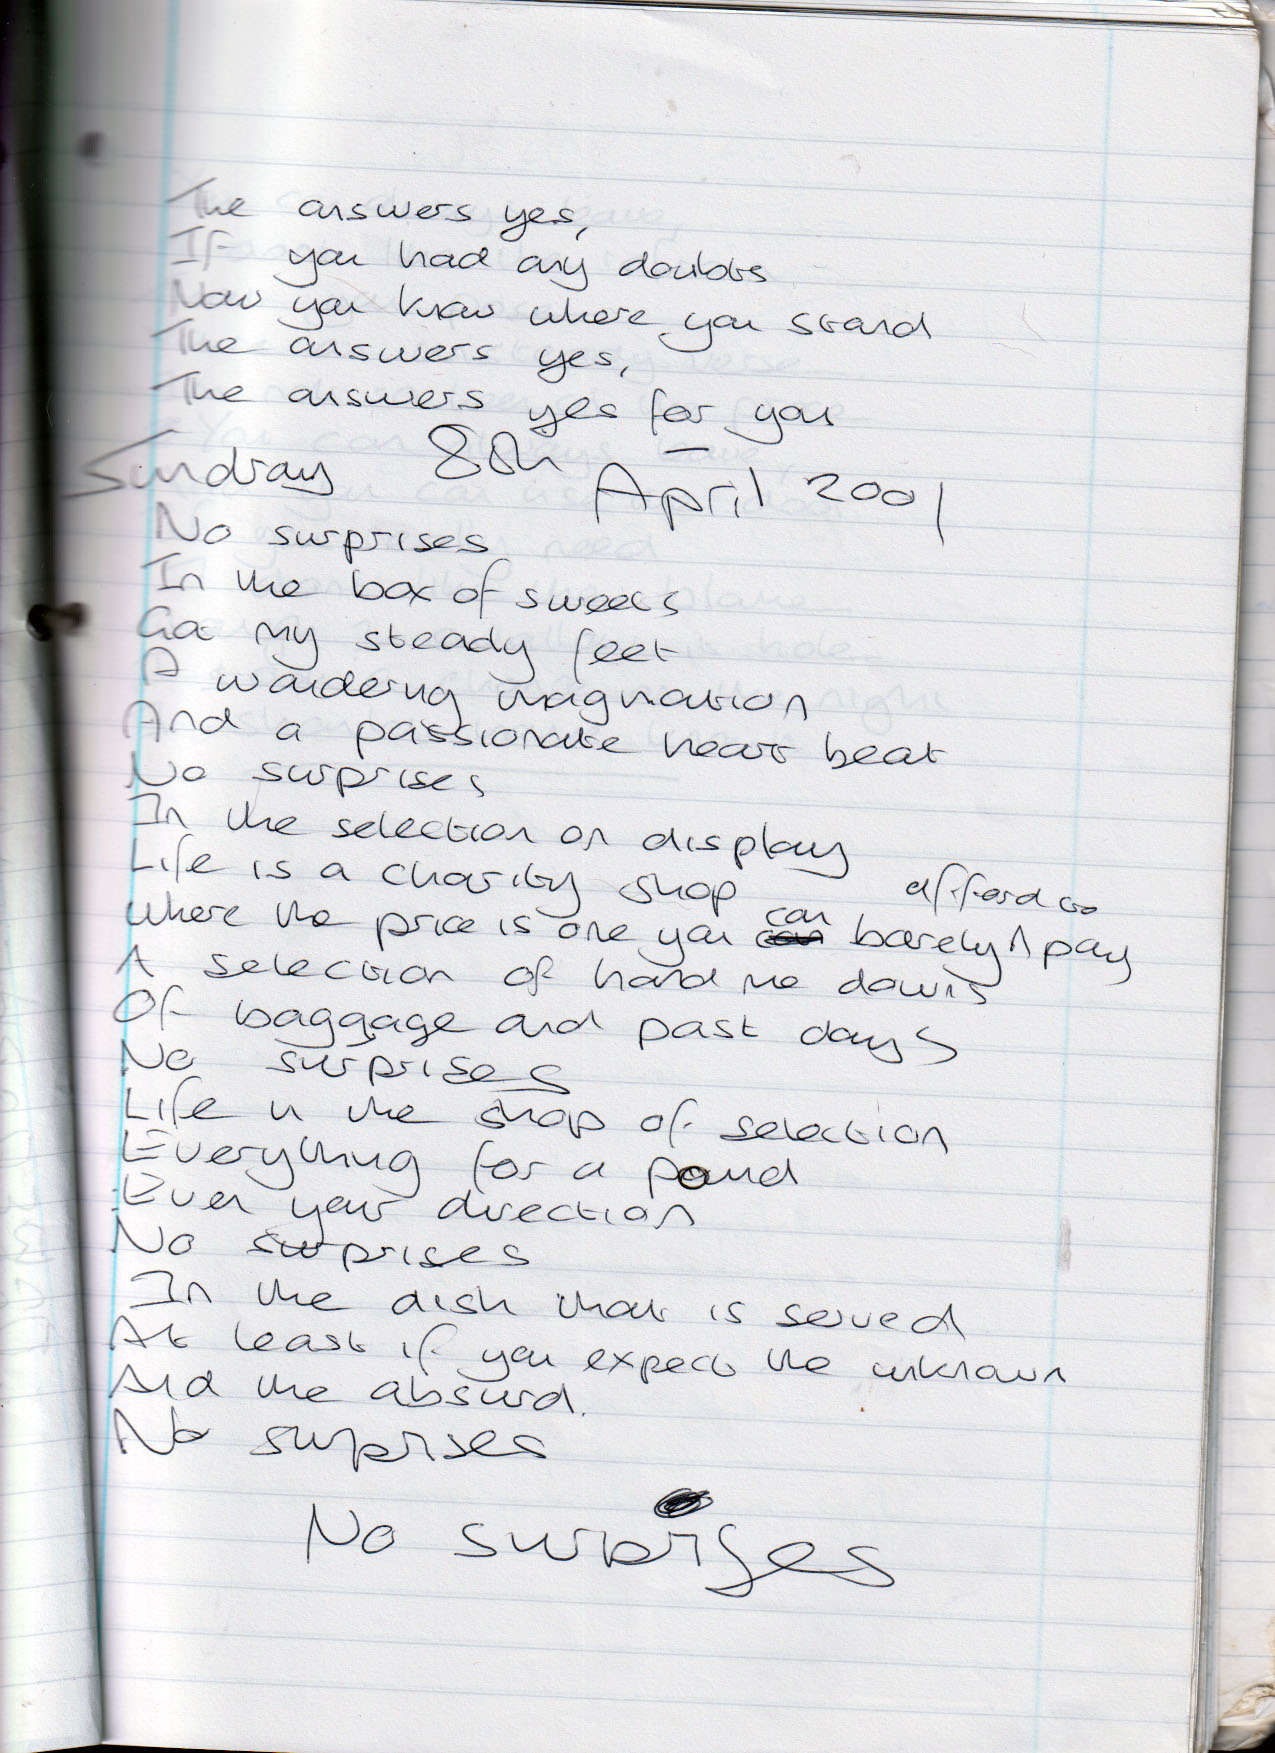 The answers yes,
If you had any doubts
Now you know where you stand
The answers yes,
The answers yes for you
Sunday 8th April 2001
No surprises
In the box of sweets
Got my steady feet
A wandering imagination
And a passionate heart beat
No surprises
In the selection on display
Life is a charity shop
Where the price is one you can barely afford to pay
A selection of hand me downs
Of baggage and past days
No surprises
Life in the shop of selection
Everything for a pound
Even your direction
No surprises
In the dish that is served
At least if you expect the unknown
And the absurd.
No surprises
No surprises